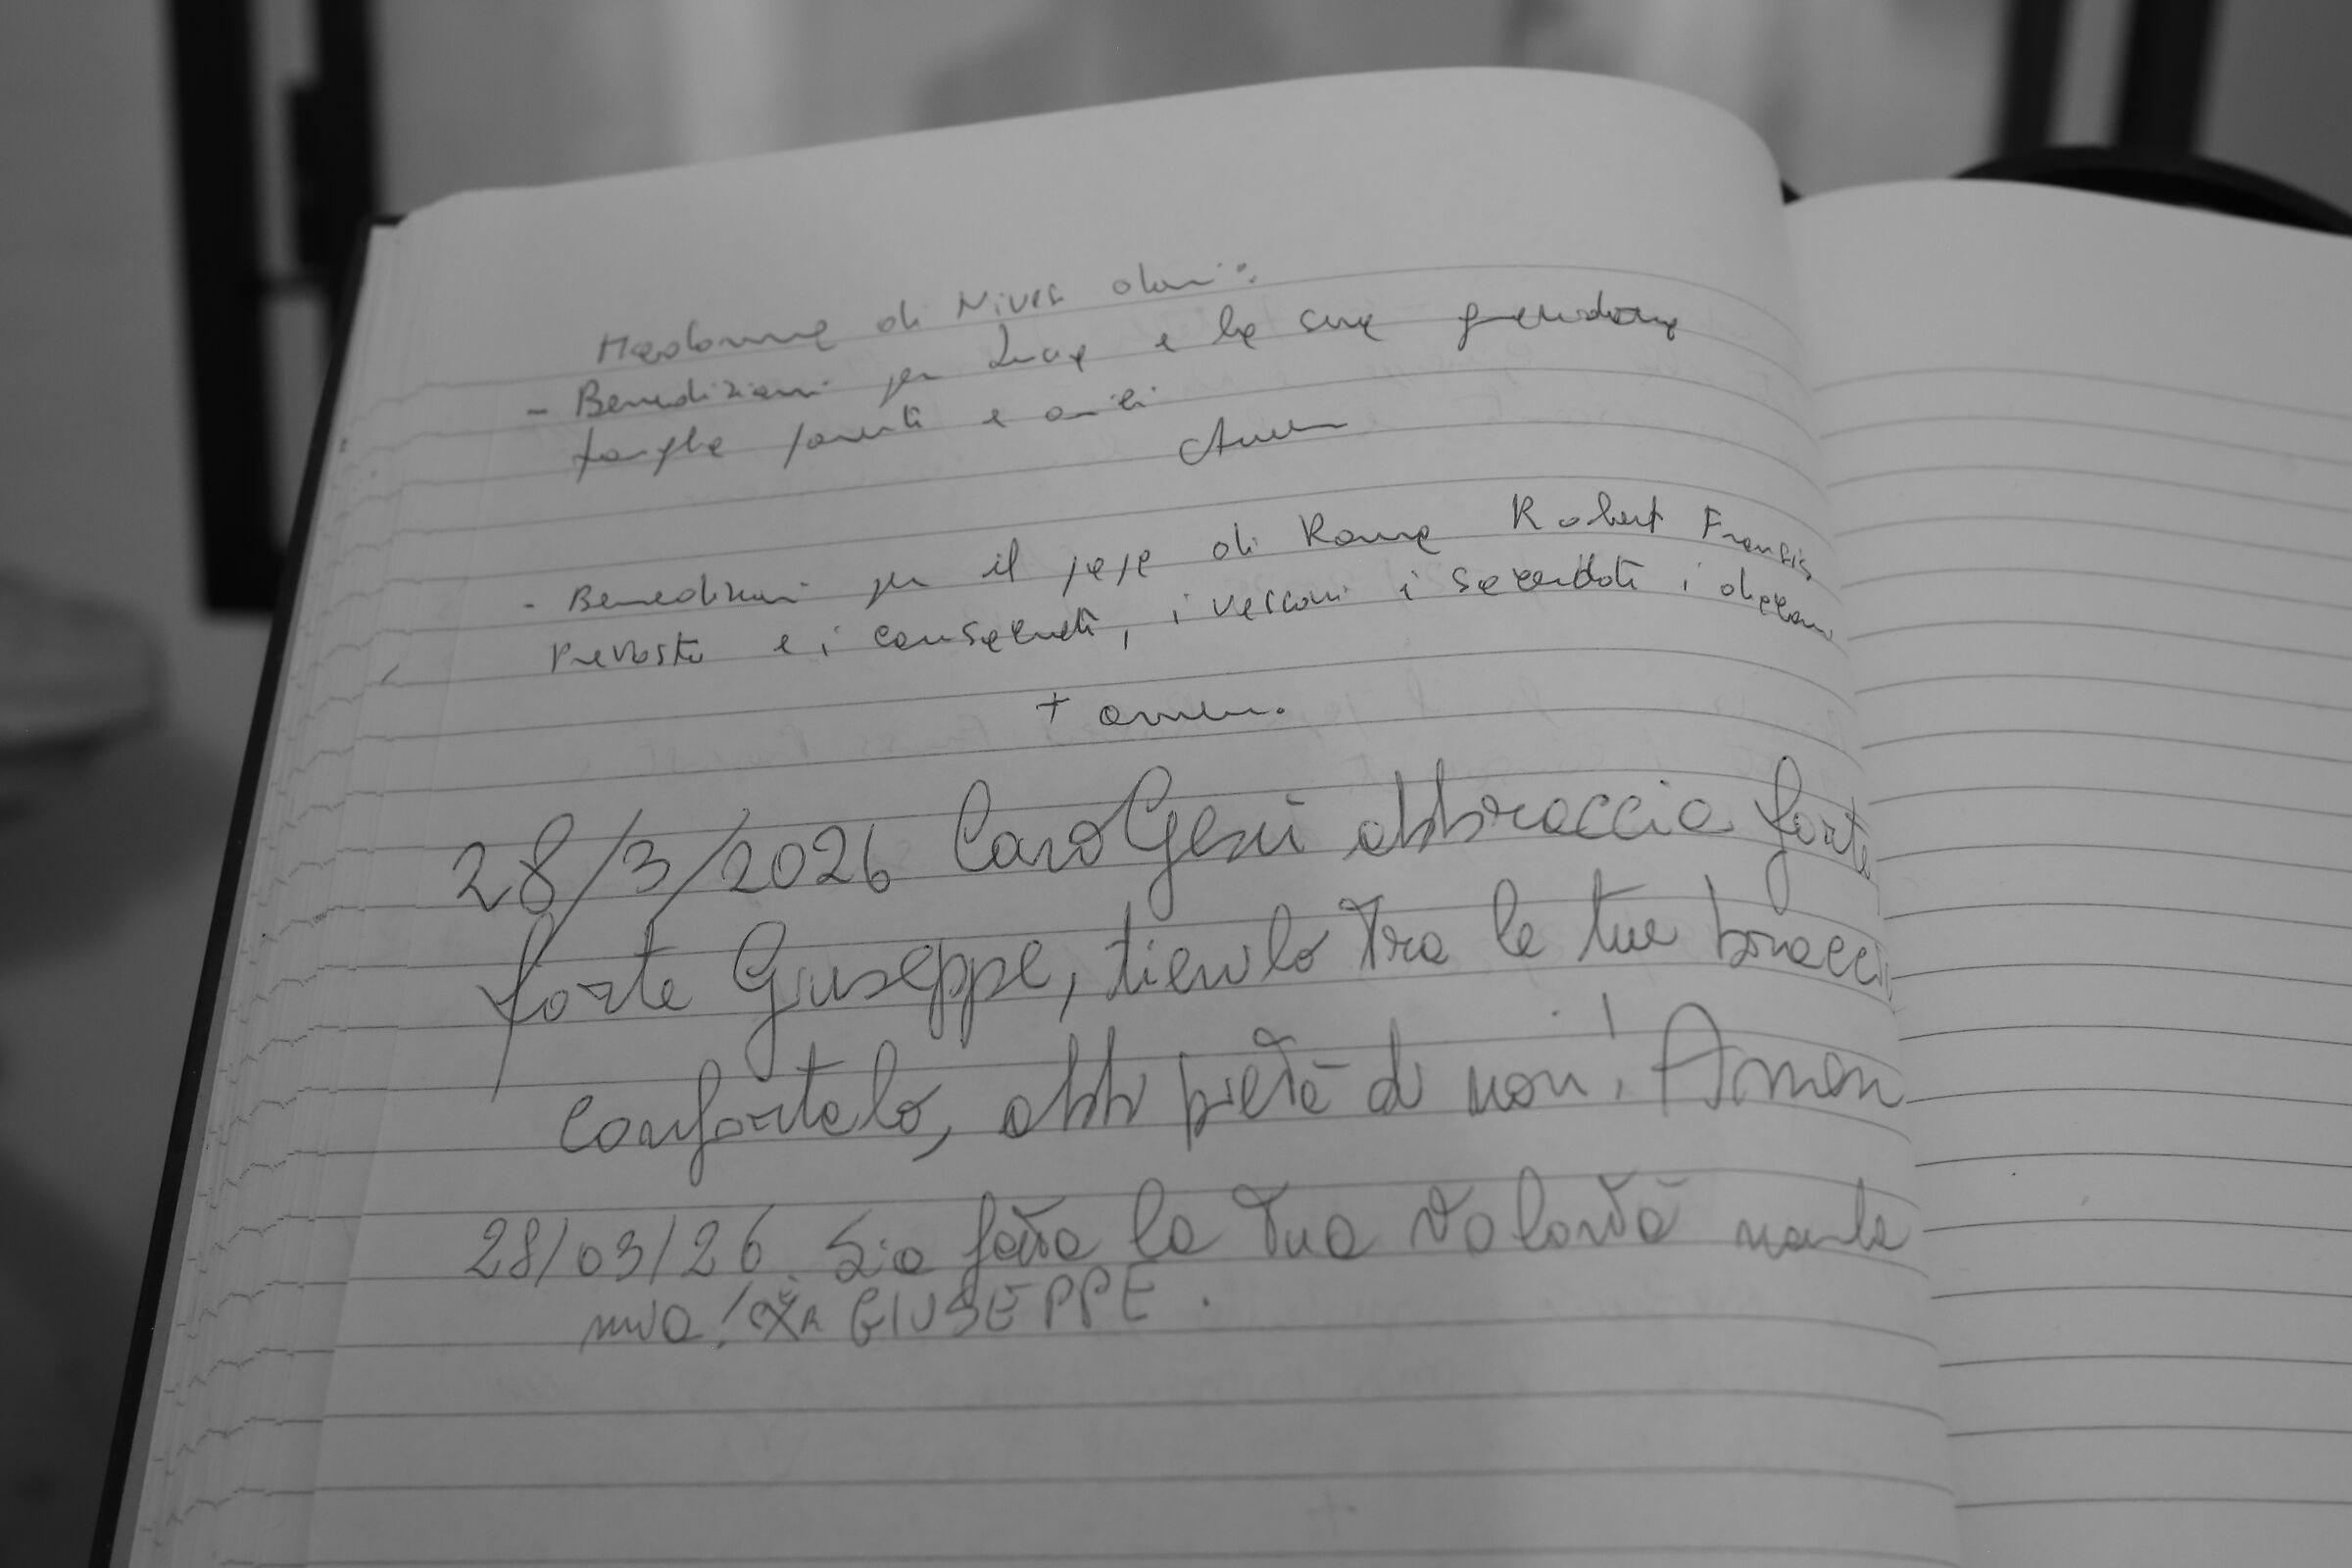 Madonna di Nives
- Benedizioni per Luca e la sua
famiglia parenti e amici
Amen
- Benedizioni per il papa di Roma Robert Francis
Prevost e i consacrati, i vescovi i sacerdoti i diaconi
+ amen.
28/3/2026 Caro Gesù abbraccia forte
forte Giuseppe, tienilo tra le tue braccia
confortalo, abbi pietà di noi! Amen
28/03/26 Sia fatta la Tua Volontà non la
mia! GIUSEPPE.